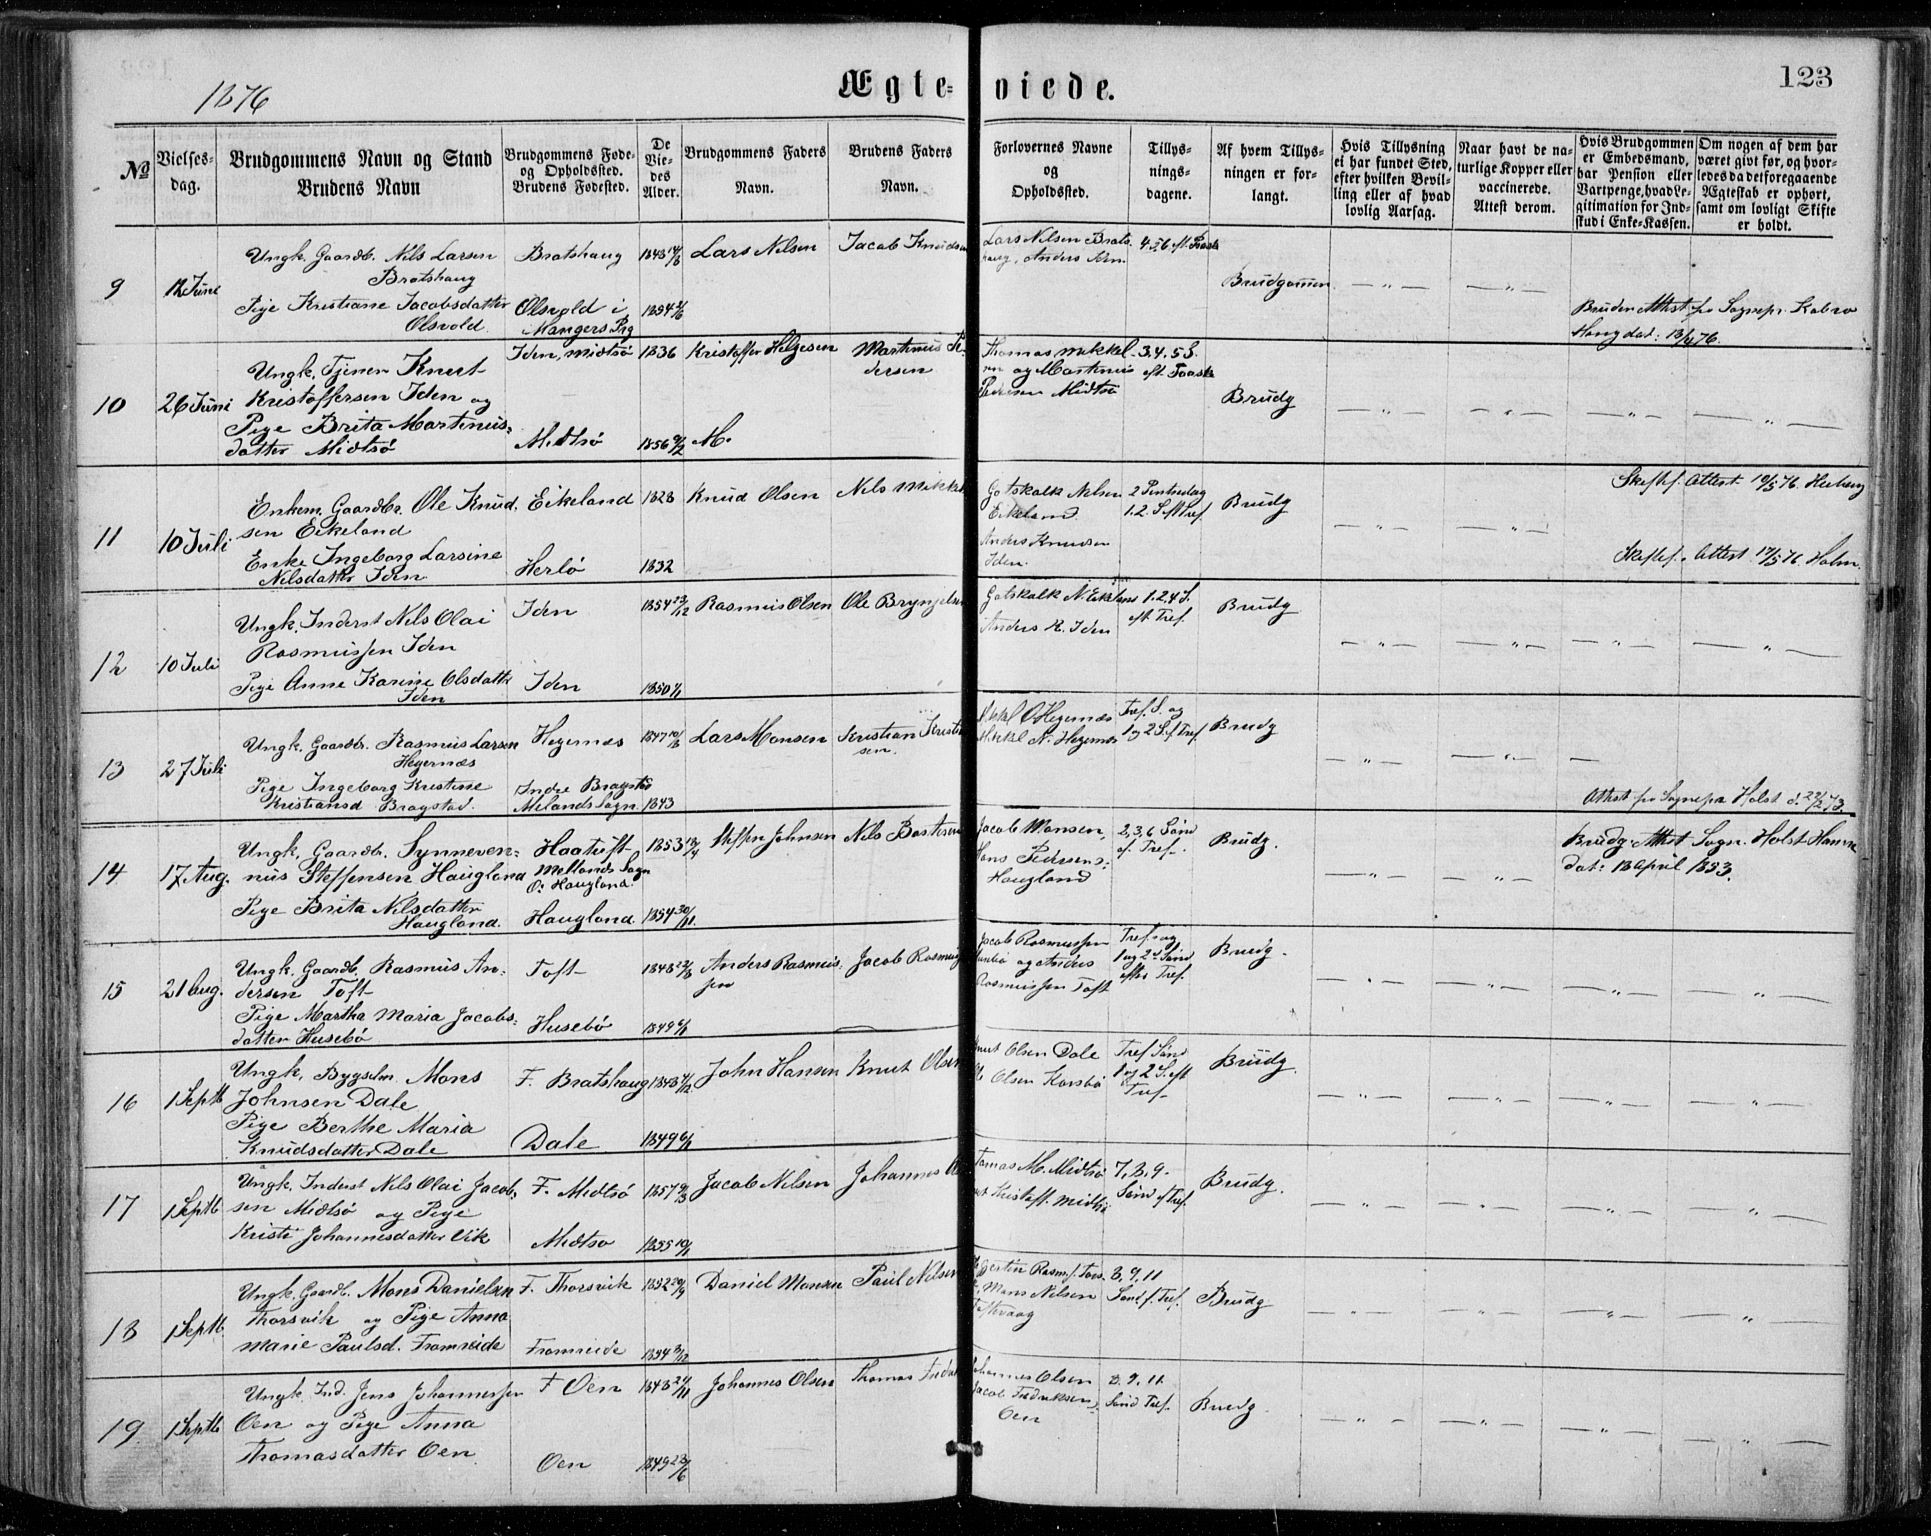 1876
Ægte- viede.
123
No
Vielses-
dag.
Brudgommens Navn og Stand
Brudens Navn
Brudgommens Føde-
og Opholdssted.
Brudens Fødested.
De
Vie-
des
Alder.
Brudgommens Faders
Navn.
Brudens Faders
Navn.
Forlovernes Navne
og
Opholdssted.
Tillys-
nings-
dagene.
Af hvem Tillys-
ningen er for-
langt.
Hvis Tillysning
ei har fundet Sted,
efter hvilken Bevil-
ling eller af hvad
lovlig Aarsag.
Naar havt de na-
turlige Kopper eller
vaccinerede.
Attest derom.
Hvis Brudgommen
er Embedsmand,
har Pension eller
Vartpenge, hvad Le-
gitimation for Ind-
skud i Enke-Kassen.
Om nogen af dem har
været givt før, og hvor-
ledes da det foregaaende
Ægteskab er ophørt,
samt om lovligt Skifte
er holdt.
9
12 Juni
Ungk. Gaardbr. Nils Larsen
Bratshaug
Pige Kristiane Jacobsdatter
Olsvold.
Bratshaug
Olsvold i
Mangers Prg
1848 14/6
1854 2/6
Lars Nilsen
Jacob Knudsen
Lars Nilsen Brats-
haug, Anders
4.5.6 ef. Paaske
Brudgommen
Bruden Attest fra Sognepr. Kobro
Haug dat: 13/4 76.
10
26 Juni
Ungk. Tjener Knut
Kristoffersen Iden og
Pige Brita Martinus-
datter Midtsø
Iden, Midtsø
Midtsø
1836
1856 9/2
Kristoffer Helgesen
M.
Martinus Pe-
dersen
Thomas Mikkel-
sen og Martinus
Pedersen Midtsø
3.4.5 S.
eft. Paaske
Brudg
11
10 Juli
Enkem. Gaardbr. Ole Knud-
sen Eikeland
Enke Ingeborg Larsine
Nilsdatter Iden
Eikeland
Herlø
1828
1832
Knud Olsen
Nils Mikkel
Gotskalk Nilsen
Eikeland
Anders Knudsen
Iden.
2 Pintsedag
1.2. S. eft Tref.
Brudg
Skiftef. Attest 10/5 76. Heiberg
Skiftef. Attest 17/5 76. Holm.
12
10 Juli
Ungk. Inderst Nils Olai
Rasmussen Iden
Pige Anne Karine Olsdatter
Iden
Iden
Iden
1854 23/12
1850 1/1
Rasmus Olsen
Ole Bryngelsen
Gotskalk N. Eikeland
Anders K. Iden
1.2.4 S.
eft Tref.
Brudg
13
27 Juli
Ungk. Gaardbr. Rasmus Larsen
Hegernæs
Pige Ingeborg Kristine
Kristiansd Bragstad.
Hegernæs
Indre Bragstad
Melands Sogn
1847 10/8
1843
Lars Monsen
Kristian Krist
sen.
Mikkel O Hegernæs
Mikkel N. Hegernæs
Tref. S. og
1 og 2 S. f Tref.
Brudg
Attest fra Sognepr Holst d. 22/2 73.
14
17 Aug.
Ungk. Gaardbr. Synneven-
nius Steffensen Haugland
Pige Brita Nilsdatter
Haugland.
Haatuft
Mellands Sogn
O: Haugland.
Haugland.
1853 13/4
1854 30/11
Steffen Johnsen
Nils Bastesen
Jacob Monsen,
Hans Pedersens
Haugland
2,3,6 Sønd
ef. Tref.
Brudg.
Brudg. Attest Sogn. Holst Hamre
dat: 18 April 1853.
15
21 Aug.
Ungk. Gaardb. Rasmus An-
dersen Toft
Pige Martha Maria Jacobs-
datter Husebø
Toft
Husebø
1848 22/8
1849 6/1
Anders Rasmus-
sen
Jacob Rasmus
Jacob Rasmussen
Husebø og Anders
Rasmussen Toft
Tref. og
1 og 2 Sønd
efter Tref.
Brudg.
16
1 Septb
Ungk. Bygselm. Mons
Johnsen Dale
Pige Berthe Maria
Knudsdatter Dale
F. Bratshaug
Dale
1848 4/12
1849 6/1
John Hansen
Knut Olsen
Knut Olsen Dale
Olsen Korsbø
Tref Sønd
1 og 2 S. eft
Tref.
Brudg.
17
1 Septb
Ungk. Inderst Nils Olai Jacob-
sen Midtsø og Pige
Kristi Johannesdatter Vik
F. Midtsø
Midtsø
1857 9/3
1855 10/1
Jacob Nilsen
Johannes
Tomas M. Midtsø
Kristoff. Midtsø
7.8.9.
Sønd ef Tref.
Brudg.
18
1 Septb.
Ungk. Gaardb. Mons Danielsen
Thorsvik og Pige Anna
Marie Paulsd. Fromreide
F. Thorsvik
Fromreide
1852 20/9
1854 3/12
Daniel Monsen
Paul Nilsen
Rasm. Tors-
Mons Nilsen
Toftevaag
8.9.11
Sønd. f. Tref.
Brudg
19
1 Septb
Ungk. Ind. Jens Johannessen
Oen og Pige Anna
Thomasdatter Oen
F Oen
Oen
1848 27/11
1849 23/6
Johannes Olsen
Thomas Fredr
Johannes Olsen
Jacob Fredriksen
Oen
8.9.11
Sønd Tref.
Brudg.